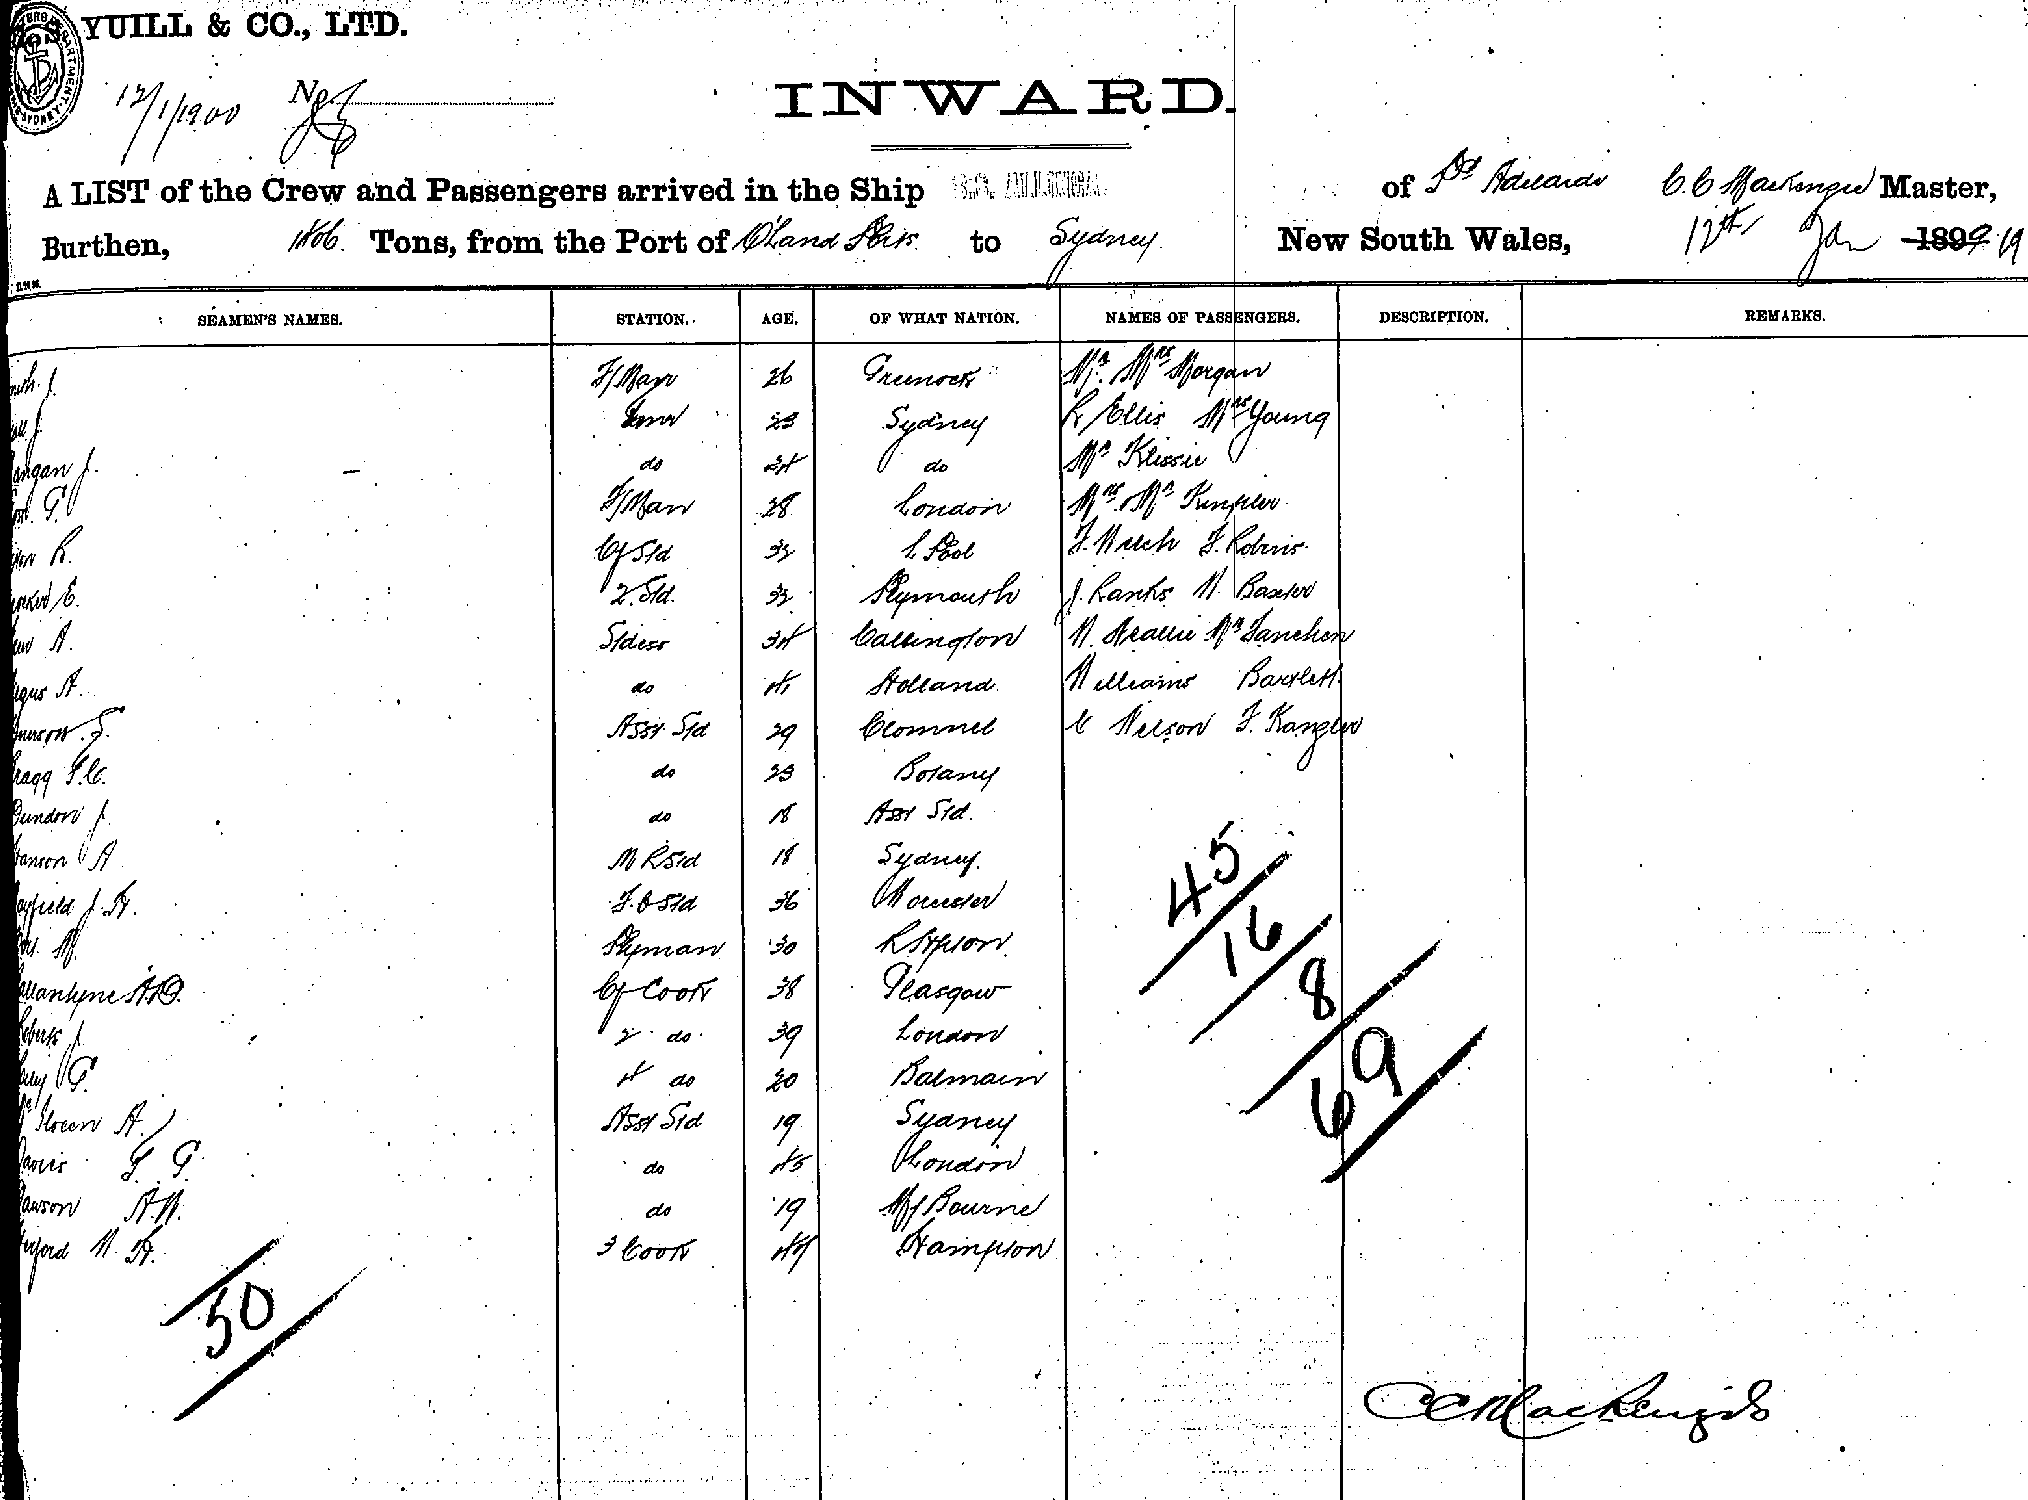 YUILL & CO., LTD.
12/1/1900 No
INWARD.
A LIST of the Crew and Passengers arrived in the Ship of Pt Adelaide C. C. Mackenzie Master,
Burthen, Tons, from the Port of Q'land Pts to Sydney New South Wales, 12th Jan 1899 19
SEAMEN'S NAMES. STATION. AGE. OF WHAT NATION. NAMES OF PASSENGERS. DESCRIPTION. REMARKS.
J. F/Man 26 Greenock Mr. Mrs Morgan
J. 23 Sydney R Ellis Mrs Young
angan J. do 24 do Mr Klissie
G. F/Man 28 London Mrs. Mr
R. Cf Std 32 L'Pool F. Welch F. Robins
E. 2. Std. 32 Plymouth J. Banks W. Baxter
A. Stdess 34 Callington W. Mr
egus A. do 41 Holland Williams Bartlett
Asst Std 29 Clonmel C Nelson F. Kangler
ragg F.C. do 23 Botany
Dundon J. do 18 Asst Std.
anson A M R Std 18 Sydney.
ayfield J. H. F. C Std 36 Worcester
M. Pyman 30
allantyne A.D. Cf Cook 38 Glasgow
oberts J. 2 do 39 London
G. 4 do 20 Balmain
A. Asst Std 19 Sydney
avies F. G. do 45 London
awson A.W. do 19 M'Bourne
erford W. H. 3 Cook 44 Hampton
45
16
8
69
50
C C Mackenzie